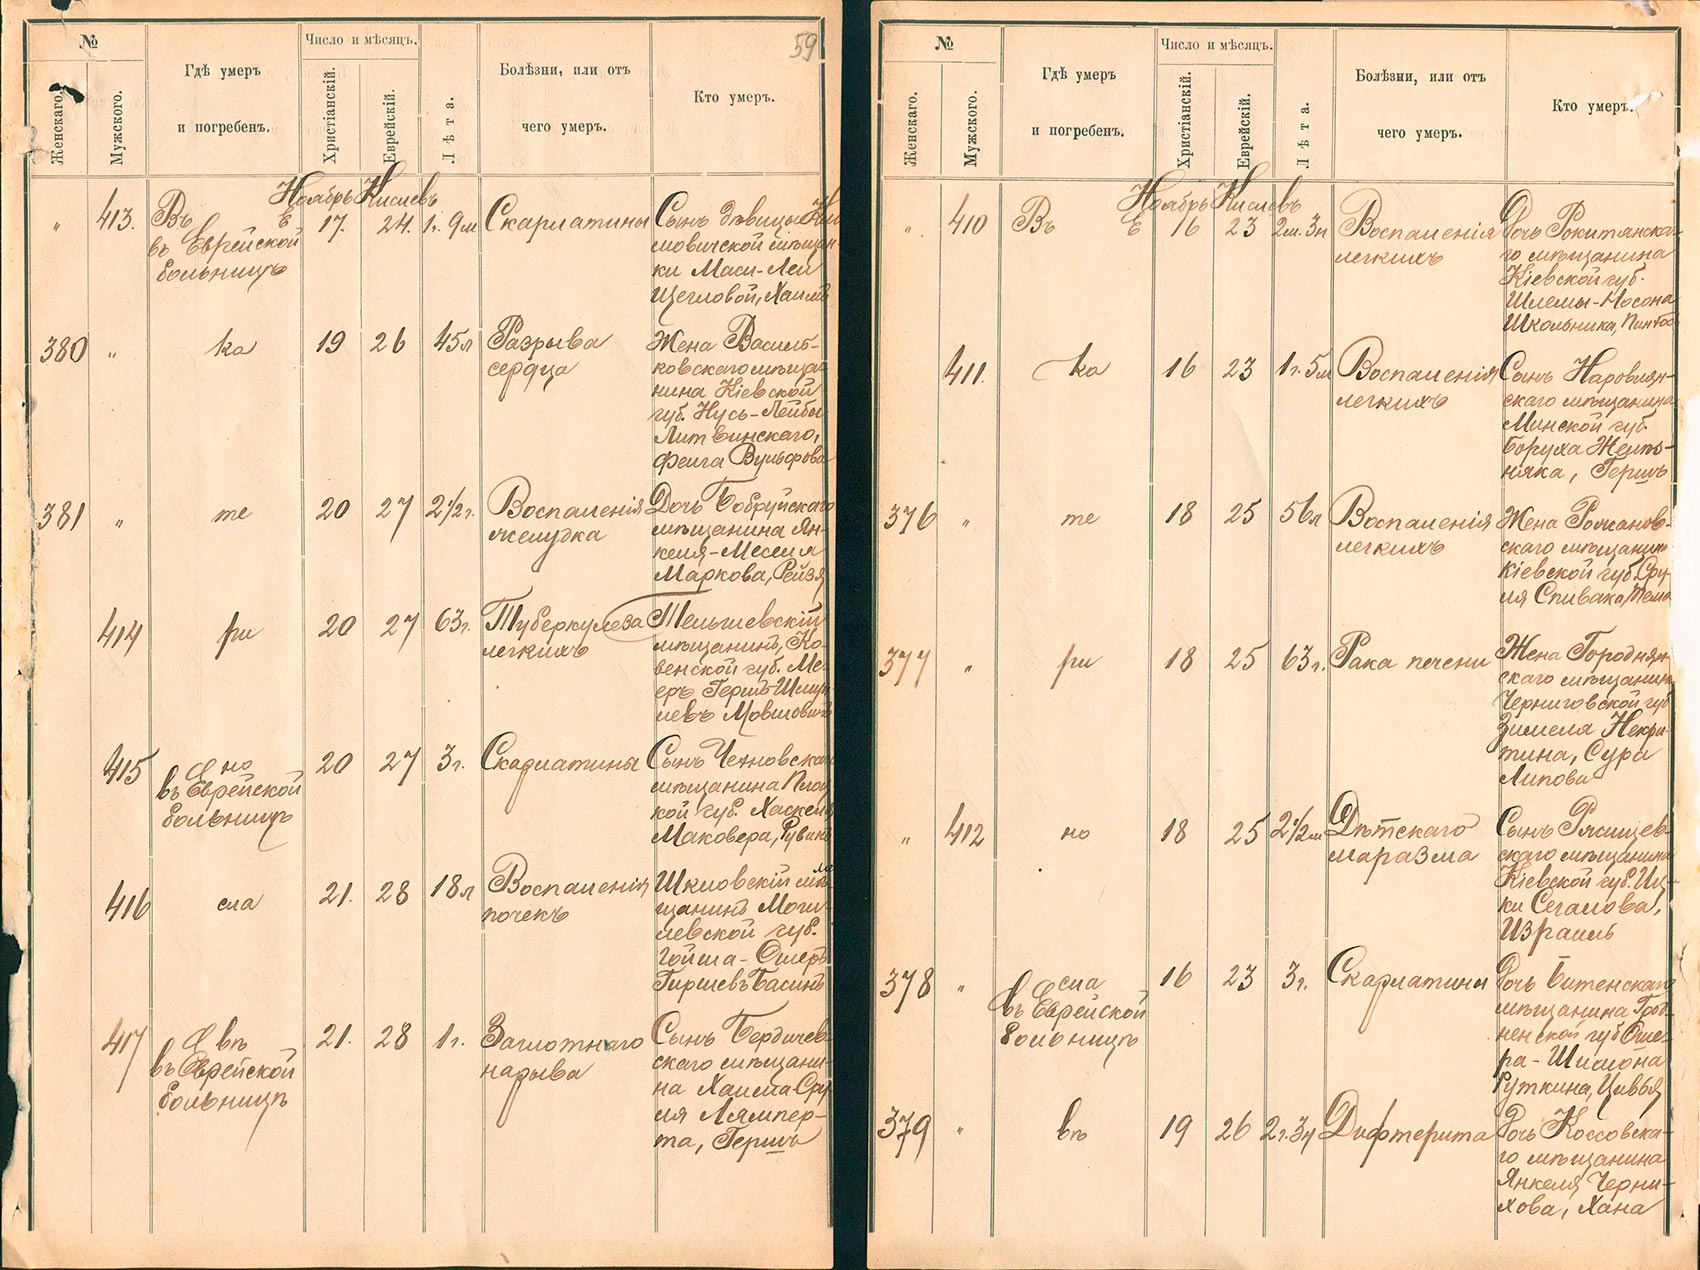 59
№
Женскаго.
Мужского.
Гдѣ умеръ
и погребенъ.
Число и мѣсяцъ.
Христіанскій.
Еврейскій.
Лѣта.
Болѣзни, или отъ
чего умеръ.
Кто умеръ.
Ноябрь Кислевъ
" 413. Въ Е 17. 24. 1г. 9м Скарлатины
въ Еврейской
больницѣ
Сынъ дѣвицы
мовичской мѣщан-
ки Маси-Леи
Щегловой, Хаимъ
380 " ка 19 26 45л Разрыва
сердца
Жена Василь-
ковскаго мѣща-
нина Кіевской
губ. Нусь-Лейбы
Литвинскаго,
Фейга Вульфова
381 " те 20 27 2½г. Воспаленія
желудка
Дочь Бобруйскаго
мѣщанина Ян-
келя-Менделя
Маркова, Рейзя
414 ри 20 27 63г. Туберкулеза
легкихъ
Тельшевскій
мѣщанинъ, Ко-
венской губ. Ме-
еръ Гершъ-Шмуй-
левъ Мовшовичъ
415 но 20 27 3г. Скарлатины
въ Еврейской
больницѣ
Сынъ
мѣщанина Плоц-
кой губ. Хаскеля
Маковера, Рувинъ
416 сла 21. 28 18л Воспаленія
почекъ
Шкловскій мѣ-
щанинъ Моги-
левской губ.
Гиршевъ Басинъ
417 вѣ 21. 28 1г. Заглотнаго
нарыва
въ Еврейской
больницѣ
Сынъ Бердичев-
скаго мѣщани-
на Хаима Сру-
ля Лямпер-
та, Гершъ
№
Женскаго.
Мужского.
Гдѣ умеръ
и погребенъ.
Число и мѣсяцъ.
Христіанскій.
Еврейскій.
Лѣта.
Болѣзни, или отъ
чего умеръ.
Кто умеръ.
Ноябрь Кислевъ
" 410 Въ Е 16 23 2м. 3н Воспаленія
легкихъ
Дочь Рокитянска-
го мѣщанина
Кіевской губ.
Шлемы-Носона
Школьника,
411. ка 16 23 1г. 5м Воспаленія
легкихъ
Сынъ Наровлян-
скаго мѣщанина
Минской губ.
Боруха Желѣз-
няка, Гершъ
376 " те 18 25 56л Воспаленія
легкихъ
Жена Романов-
скаго мѣщанина
Кіевской губ. Сру-
ля Спивака, Тема
377 " ри 18 25 63г. Рака печени
Жена Городнян-
скаго мѣщанина
Черниговской губ
Зимеля Некри-
тина, Сура
Липова
" 412 но 18 25 2½м Дѣтскаго
маразма
Сынъ Рясищев-
скаго мѣщанина
Кіевской губ. Иц-
ки Сегалова,
Израиль
378 " сла 16 23 3г. Скарлатины
въ Еврейской
больницѣ
Дочь Битенскаго
мѣщанина Грод-
ненской губ Оше-
ра-Шимона
Руткина, Цивья
379 " вѣ 19 26 2г. 3м Дифтерита
Дочь Коссовска-
го мѣщанина
Янкеля Черни-
хова, Хана